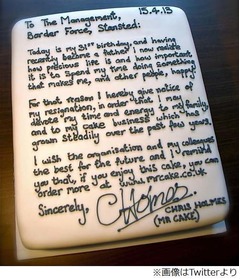 To The Management, 15.4.13
Border Force, Stansted:
Today is my 31st birthday, and having
recently become a father I now realise
how precious life is and how important
it is to spend my time doing something
that makes me, and other people, happy.
For that reason I hereby give notice of
my resignation, in order that I may
devote my time and energy to my family,
and to my cake business which has
grown steadily over the past few years.
I wish the organisation and my colleagues
the best for the future, and I remind
you that, if you enjoy this cake, you can
order more at www.mrcake.co.uk.
Sincerely, CHolmes
CHRIS HOLMES
(MR CAKE)
※Twitterより